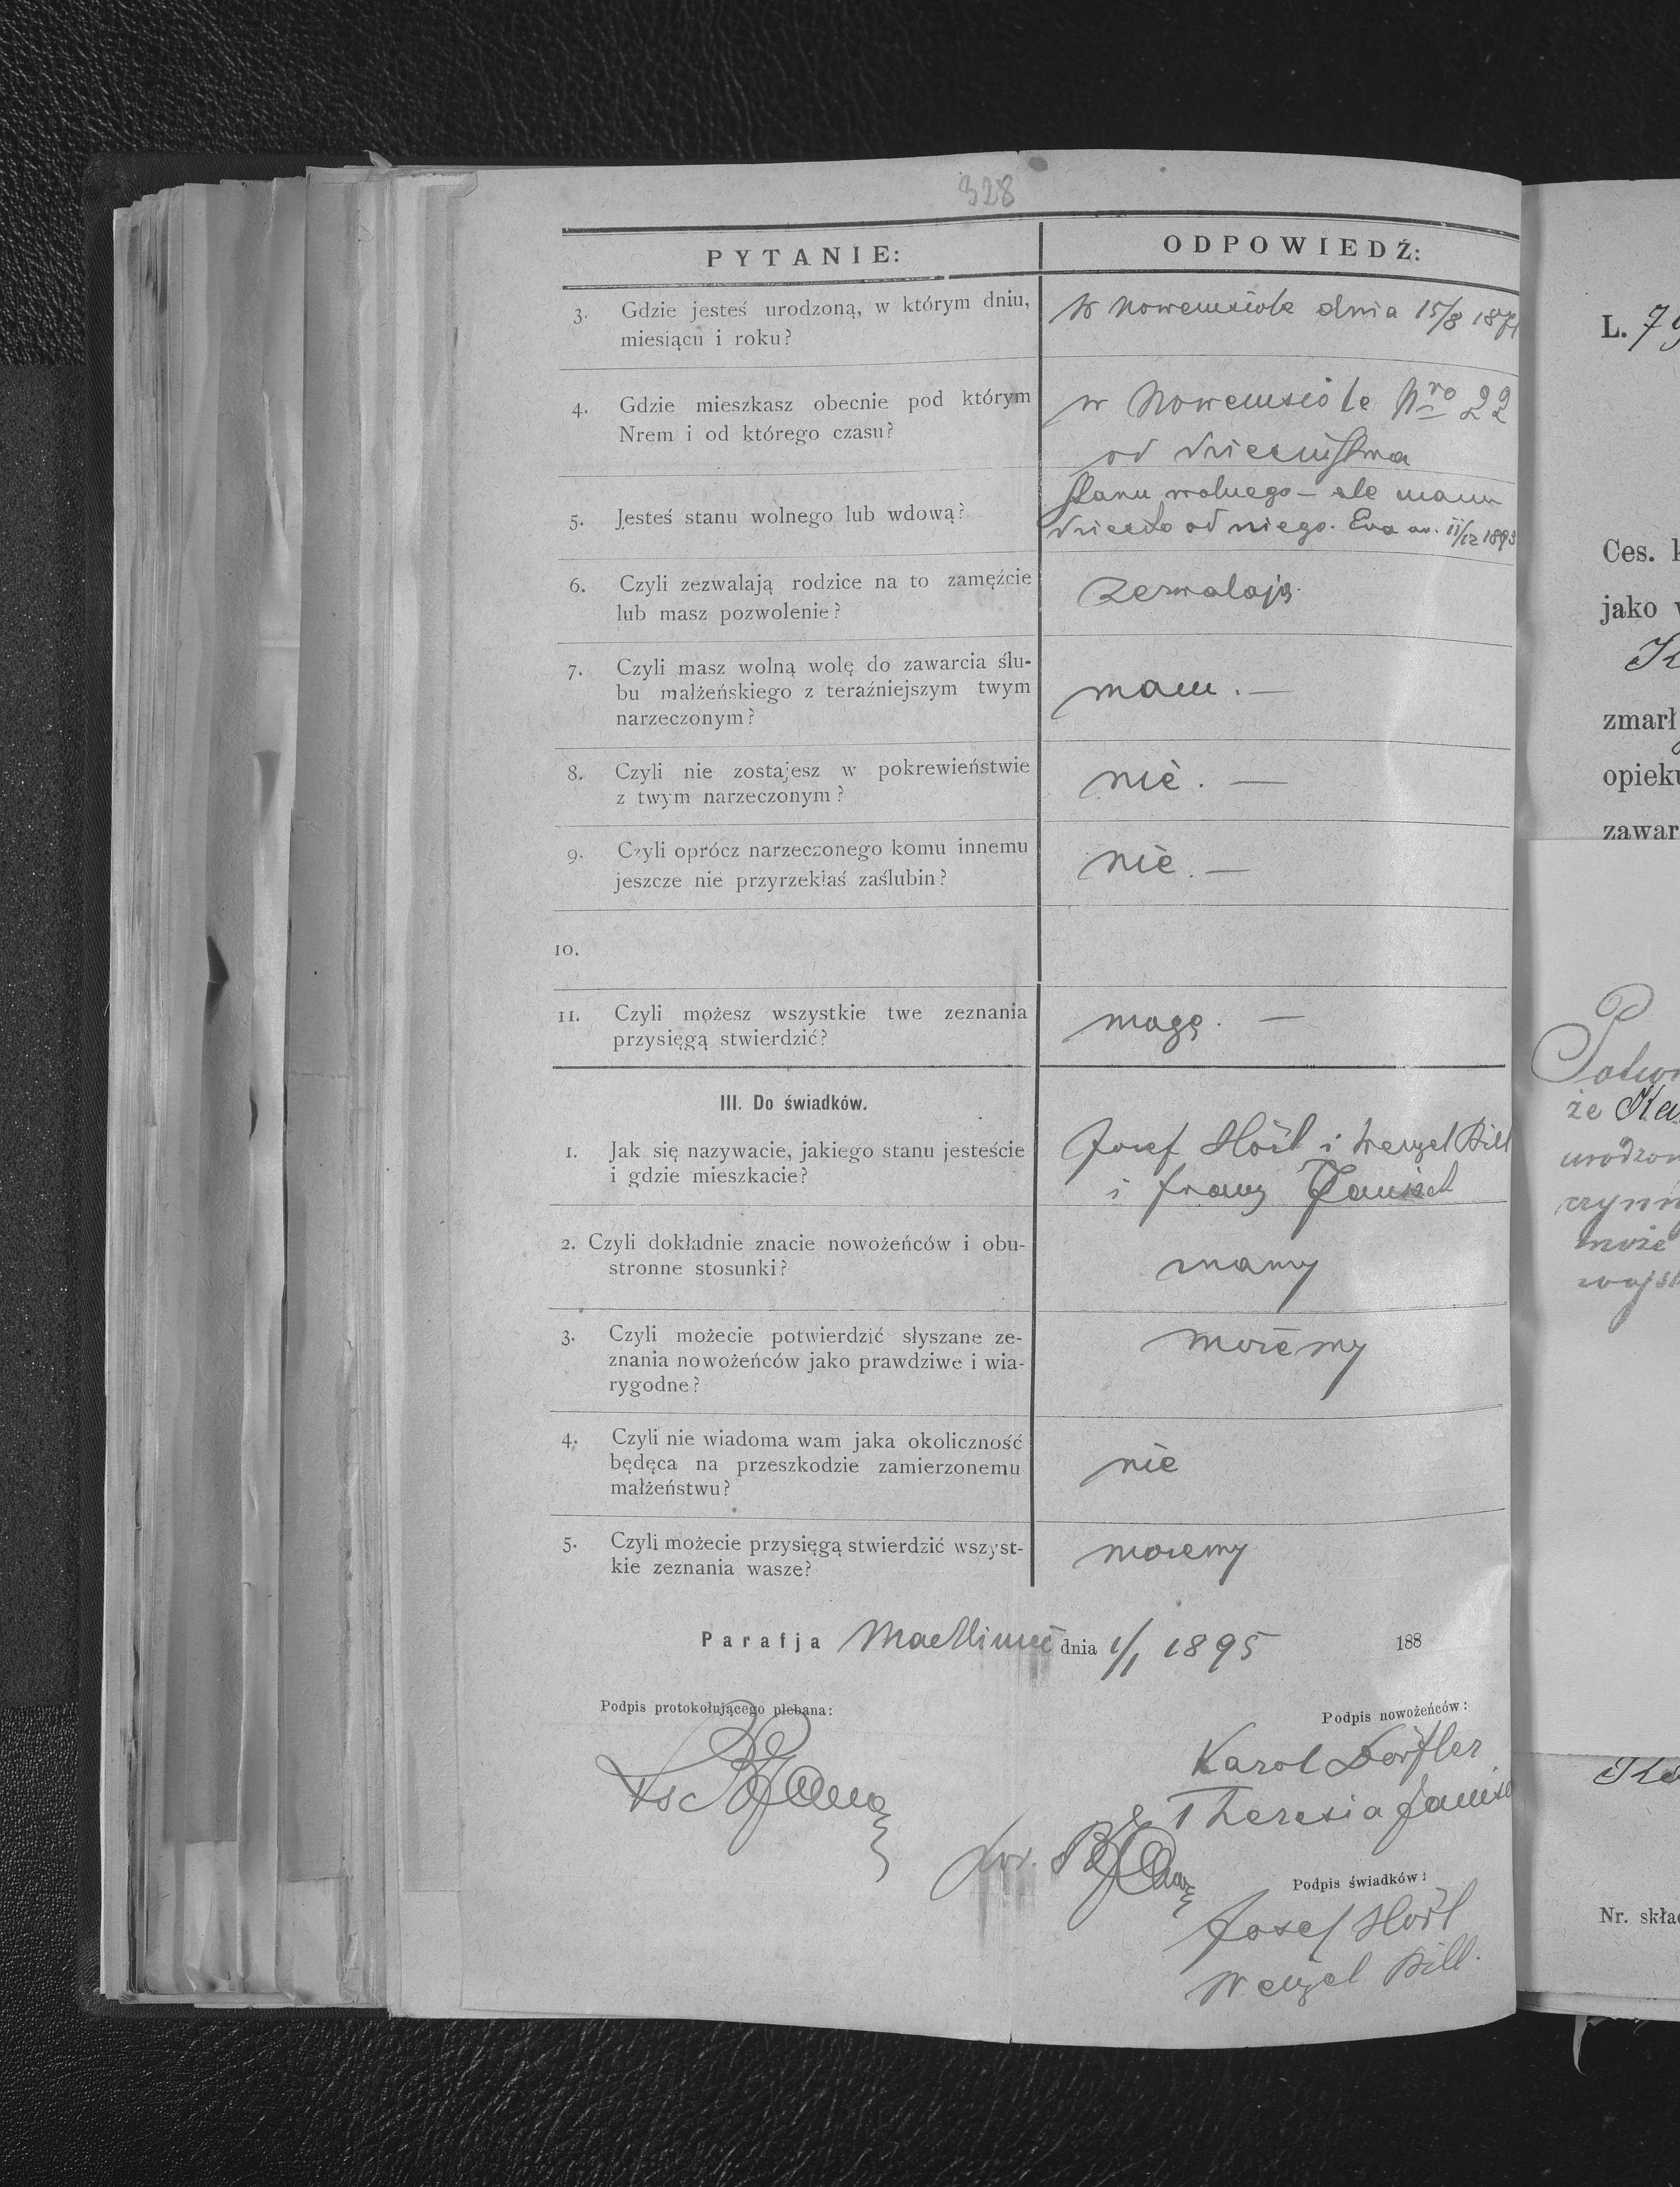 328
PYTANIE:
ODPOWIEDŹ:
3. Gdzie jesteś urodzoną, w którym dniu,
miesiącu i roku?
W Nowemsiole dnia 15/8 1871
4. Gdzie mieszkasz obecnie pod którym
Nrem i od którego czasu?
w Nowemsiole Nro 22
od dzieciństwa
5. Jesteś stanu wolnego lub wdową?
stanu wolnego – ale mam
dziecko od niego. Eva 11/12 1893
6. Czyli zezwalają rodzice na to zamęźcie
lub masz pozwolenie?
zezwalają.
7. Czyli masz wolną wolę do zawarcia ślu-
bu małżeńskiego z teraźniejszym twym
narzeczonym?
mam. —
8. Czyli nie zostajesz w pokrewieństwie
z twym narzeczonym?
nie. —
9. Czyli oprócz narzeczonego komu innemu
jeszcze nie przyrzekłaś zaślubin?
nie. —
10.
11. Czyli możesz wszystkie twe zeznania
przysięgą stwierdzić?
mogę. —
III. Do świadków.
1. Jak się nazywacie, jakiego stanu jesteście
i gdzie mieszkacie?
Josef Hösl i Wenzel Bill
i Franz Janisch
2. Czyli dokładnie znacie nowożeńców i obu-
stronne stosunki?
znamy
3. Czyli możecie potwierdzić słyszane ze-
znania nowożeńców jako prawdziwe i wia-
rygodne?
możemy
4. Czyli nie wiadoma wam jaka okoliczność
będęca na przeszkodzie zamierzonemu
małżeństwu?
nie
5. Czyli możecie przysięgą stwierdzić wszyst-
kie zeznania wasze?
możemy
Parafja dnia 1/1 1895 188
Podpis protokołującego plebana:
Podpis nowożeńców:
Karol Dörfler
Theresia Janisc
Podpis świadków:
Josef Hösl
Wenzel Bill.
L. 79
Ces. k
jako w
zmarł
opieku
zawar
że
urodzon
może
Nr. skła